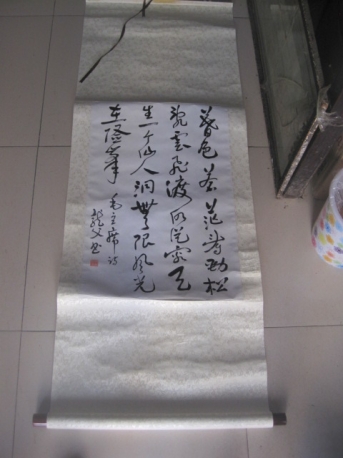 暮色苍茫看劲松
乱雲飞渡仍从容天
生一个仙人洞無限风光
在险峯 毛主席诗
书